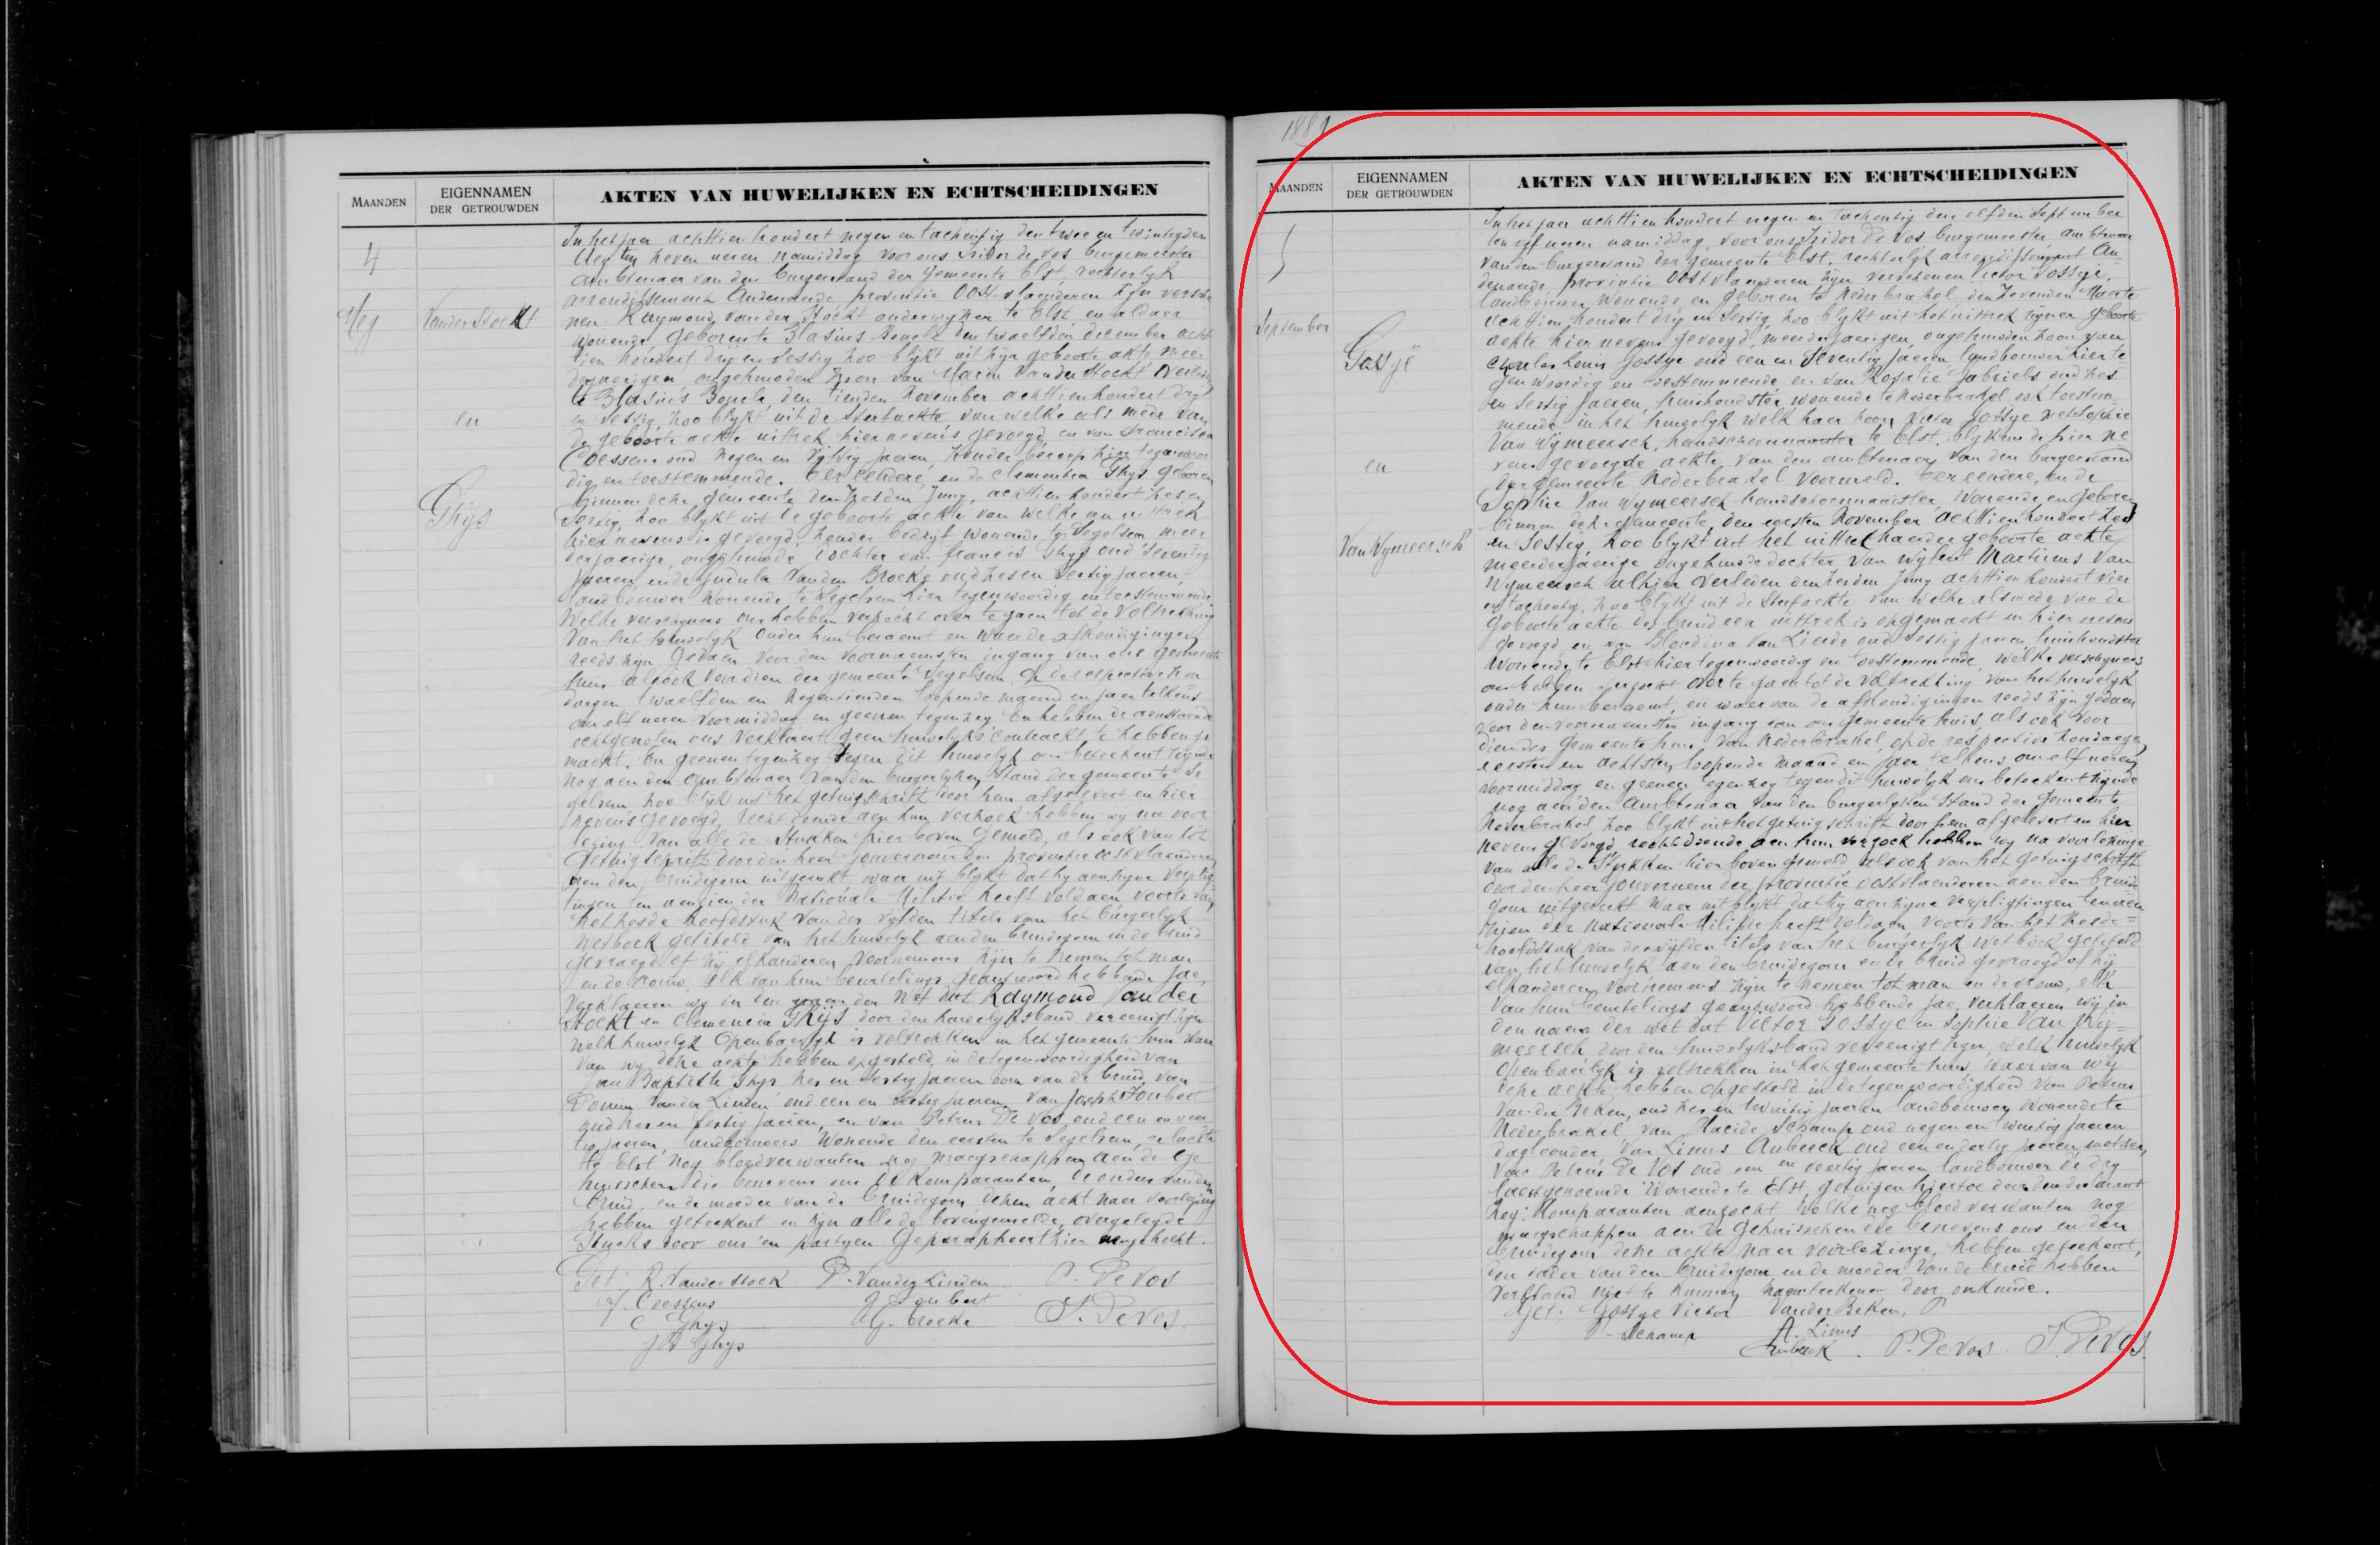 MAANDEN
EIGENNAMEN
DER GETROUWDEN
AKTEN VAN HUWELIJKEN EN ECHTSCHEIDINGEN
4
Vander Stockt
en
Ghys
In het jaer achttien hondert negen en tachentig den twee en twintigsten
zeven uren namiddag voor ons Isidor de Vos burgemeester
ambtenaar van den burgerstand der gemeente Elst, rechterlyk
arrondissement Audenaerde provintie Oost-vlaenderen zyn verschenen
Raymond van der Stockt onderwyzer te Elst en aldaer
wonende, geboren te Blasius Boucle den twaelfden december acht
tien hondert dry en sestig zoo blykt uit zyn geboorte akte meer
derjaerigen ongehuwden zoon van Marin Vander Stockt overleden
te Blasius Boucle, den tienden November achttien hondert dry
en sestig, zoo blykt uit de sterfackte van welke als mede van
de geboorte ackte uittrek hier nevens gevoegd, en van Francisca
Coessens oud negen en vyftig jaeren, zonder beroep hier tegenwoor
dig en toestemmende. Ter eendere, en de Clementia Ghys geboren
binnen deze gemeente den zesden Juny, achttien hondert zes en
sestig, zoo blykt uit de geboorte ackte van welke een uittrek
hier nevens is gevoegd, zonder bedryf wonende te Segelsem meer
derjaerige, ongehuwde dochter van Francis Ghys oud seventig
jaeren ende Judula Vanden Broeke oud zes en sestig jaeren,
landbouwers wonende te Segelsem hier tegenwoordig en toestemmende
Welke verschyners ons hebben verzocht over te gaen tot de voltrekking
van het huwelyk onder hun beraemt en waer de afkondigingen
reeds zyn gedaen voor den voornaemsten ingang van ons gemeente
huis alsook voor dien der gemeente Segelsem op de respective zon
daegen twaelfden en negentienden loopende maend en jaer telkens
om elf uren voormiddag en geenen tegenzeg en hebben de aenstaende
echtgenoten ons verklaert geen huwelyks contrackt te hebben ge
maekt. En geenen tegenzeg tegen dit huwelyk ons beteekent zynde
nog aen den ambtenaer van den burgerlyken stand der gemeente Se
gelsem zoo blykt uit het getuigschrift door hem afgelevert en hier
nevens gevoegd, recht doende aen hun verzoek hebben wy na voor
lezing van alle de stukken hier boven gemeld, als ook van tot
getuigschrift door den heer Gouverneur der provintie oostvlaenderen
aen den bruidegom uitgereikt waer uit blykt dat hy aen zyne verplig
tingen ten aenzien der Nationale Militie heeft voldaen voorts van
het zesde hoofdstuk van den vyfden titels van het burgerlyk
wetboek getiteld van het huwelyk aen den bruidegom en de bruid
gevraegd of zy elkanderen voornemens zyn te nemen tot man
en de vrouw, elk van hun beurtelings geantwoord hebbende Jae,
verklaeren wy in den naam der Wet dat Raymond Vander
Stockt en Clemencia Ghys door den huwelyksband vereenigt zyn
welk huwelyk openbaerlyk is voltrokken in het gemeente huis waer
van wy deze ackte hebben opgesteld, in de tegenwoordigheid van
Jan Baptiste Ghys zes en sestig jaeren oom van de bruid, van
Domin Vander Linden oud een en sestig jaeren, van Joseph Joubert
oud zes en sestig jaeren, en van Petrus De Vos oud een en veer
tig jaeren, landbouwers wonende den eersten te Segelsem, de laeste
te Elst, nog bloedverwanten nog maegschappen aen de ge
huisschen die benevens ons de komparanten, de ouders van den
bruid, en de moeder van de bruidegom dezen ackt naer voorlezing
hebben geteekent en zyn alle de bovengemelde, overgelegde
stucks door ons en partyen geparapheert hier aengehecht.
Get: R. Vander Stock P. Vander Linden P. De Vos
Coessens J. Joubert
C Ghys broeke I. De Vos
J B Ghys
1889
MAANDEN
EIGENNAMEN
DER GETROUWDEN
AKTEN VAN HUWELIJKEN EN ECHTSCHEIDINGEN
5
September
Gossye
en
Van Wymeersch
In het jaer achttien hondert negen en tachentig den elfden September
ten vyf uren namiddag, voor ons Isidor De Vos burgemeester ambtenaar
van den burgerstand der gemeente Elst, rechterlyk arrondissement Au
denaerde, provintie Oostvlaenderen zyn verschenen Victor Gossye,
landbouwer wonende en geboren te Nederbrakel den zevenden Maerte
achttien hondert dry en sestig, zoo blykt uit het uittrek zyner geboorte
ackte hier nevens gevoegd, meerderjaerigen, ongehuwden zoon van
Charles Louis Gossye oud een en seventig jaeren landbouwer hier te
genwoordig en toestemmende, en van Rosalie Gabriels oud zes
en sestig jaeren, huishoudster wonende te Nederbrakel ook toestem
mende in het huwelyk welk haer zoon Victor Gossye met Sophie
Van Wymeersch, handschoennaaister te Elst, blykende hier ne
vens gevoegde ackte van den ambtenaer van den burgerstand
der gemeente Nederbrakel voormeld. Ter eendere, en de
Sophie Van Wymeersch handschoennaaister, wonende en geboren
binnen deze gemeente, den eersten November achttien hondert zes
en sestig, zoo blykt uit het uittrek haerder geboorte ackte,
meerderjaerige ongehuwde dochter van wylent Martinus Van
Wymeersch alhier verleden den zesden Juny achttien hondert vier
en tachentig, zoo blykt uit de sterfackte van welke alsmede van de
geboorte ackte des bruid een uittrek is opgemaekt en hier nevens
gevoegd en van Blondina Van Lierde oud sestig jaeren huishoudster
wonende te Elst hier tegenwoordig en toestemmende, welke verschyners
ons hebben verzocht over te gaen tot de voltrekking van het huwelyk
onder hun beraemt, en waer van de afkondigingen reeds zyn gedaen
voor den voornaemsten ingang van ons gemeente huis, als ook voor
dien des gemeente huis van Nederbrakel, op de respective zondaegen
eersten en achtsten loopende maand en jaer telkens om elf uren
voormiddag en geenen tegenzeg tegen dit huwelyk ons beteekent zynde
nog aen den ambtenaar van den burgerlyken stand der gemeente
Nederbrakel, zoo blykt uit het getuigschrift door hem afgelevert en hier
nevens gevoegd, recht doende aen hun verzoek hebben wy na voorlezinge
van alle de stukken hier boven gemeld, als ook van het getuigschrift
door den heer gouverneur der provintie oostvlaenderen aen den bruide
gom uitgereikt waer uit blykt dat hy aen zyne verpligtingen ten aen
zien der Nationale Militie heeft voldaen, voorts van het zesde
hoofdstuk van den vyfden titels van het burgerlyk wetboek getiteld
van het huwelyk, aen den bruidegom en de bruid gevraegd of zy
elkanderen voornemens zyn te nemen tot man en de vrouw, elk
van hun beurtelings geantwoord hebbende jae, verklaeren wy in
den naam der wet dat Victor Gossye en Sophie Van Wy
meersch door den huwelyksband vereenigt zyn, welk huwelyk
openbaerlyk is voltrokken in het gemeente huis, waer van wy
deze ackte hebben opgesteld in de tegenwoordigheid van Petrus
Van der Beken, oud zes en twintig jaeren landbouwer wonende te
Nederbrakel, van Placide Schamp oud negen en twintig jaeren
dagloonder, van Linus Aubeeck oud een en dertig jaeren, metser,
van Petrus De Vos oud een en veertig jaeren landbouwer de dry
laestgenoemde wonende te Elst, getuigen hiertoe door den
komparanten aenzocht welke nog bloedverwanten nog
maegschappen aen de gehuisschen die benevens ons en den
bruidegom deze ackte naer voorlezinge, hebben geteekent,
den vader van den bruidegom en de moeder van de bruid hebben
verklaerd niet te kunnen naemteekenen door onkunde.
Get: Gossye Victor Vander Beken, P
P. Schamp A. Linus
Aubeeck . P. De Vos I. De Vos